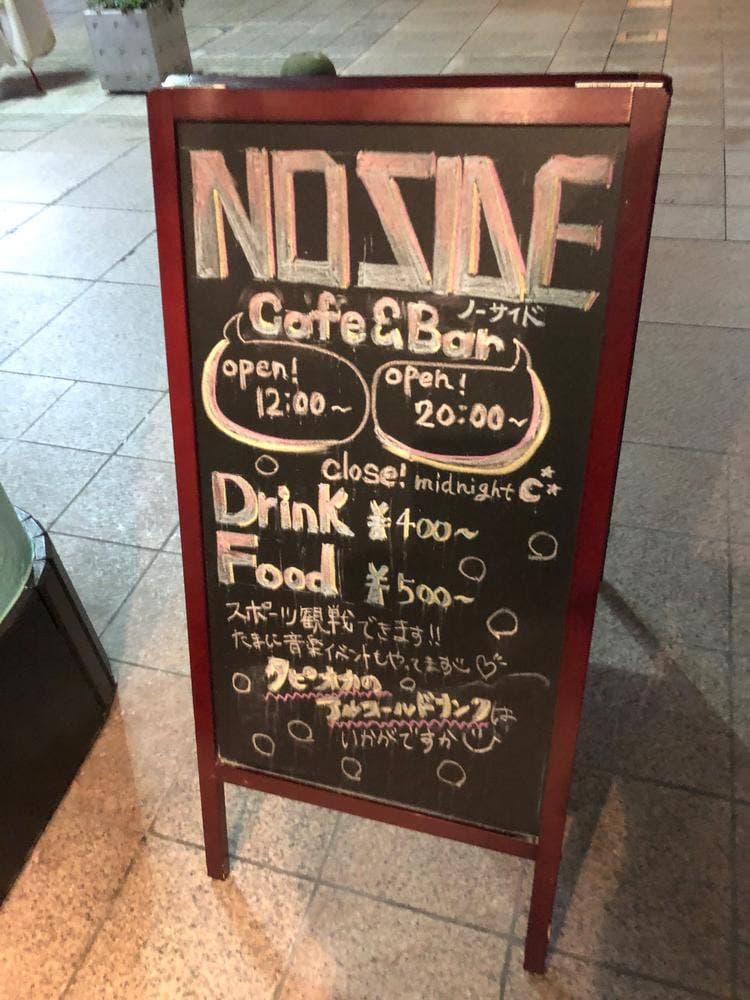 NO SIDE
ノーサイド
Cafe&Bar
open!
12:00~
open!
20:00~
close! midnight
Drink ¥400~
Food ¥500~
スポーツ観戦できます!!
たまに音楽イベントもやってます
タピオカの
アルコールドリンクは
いかがですか